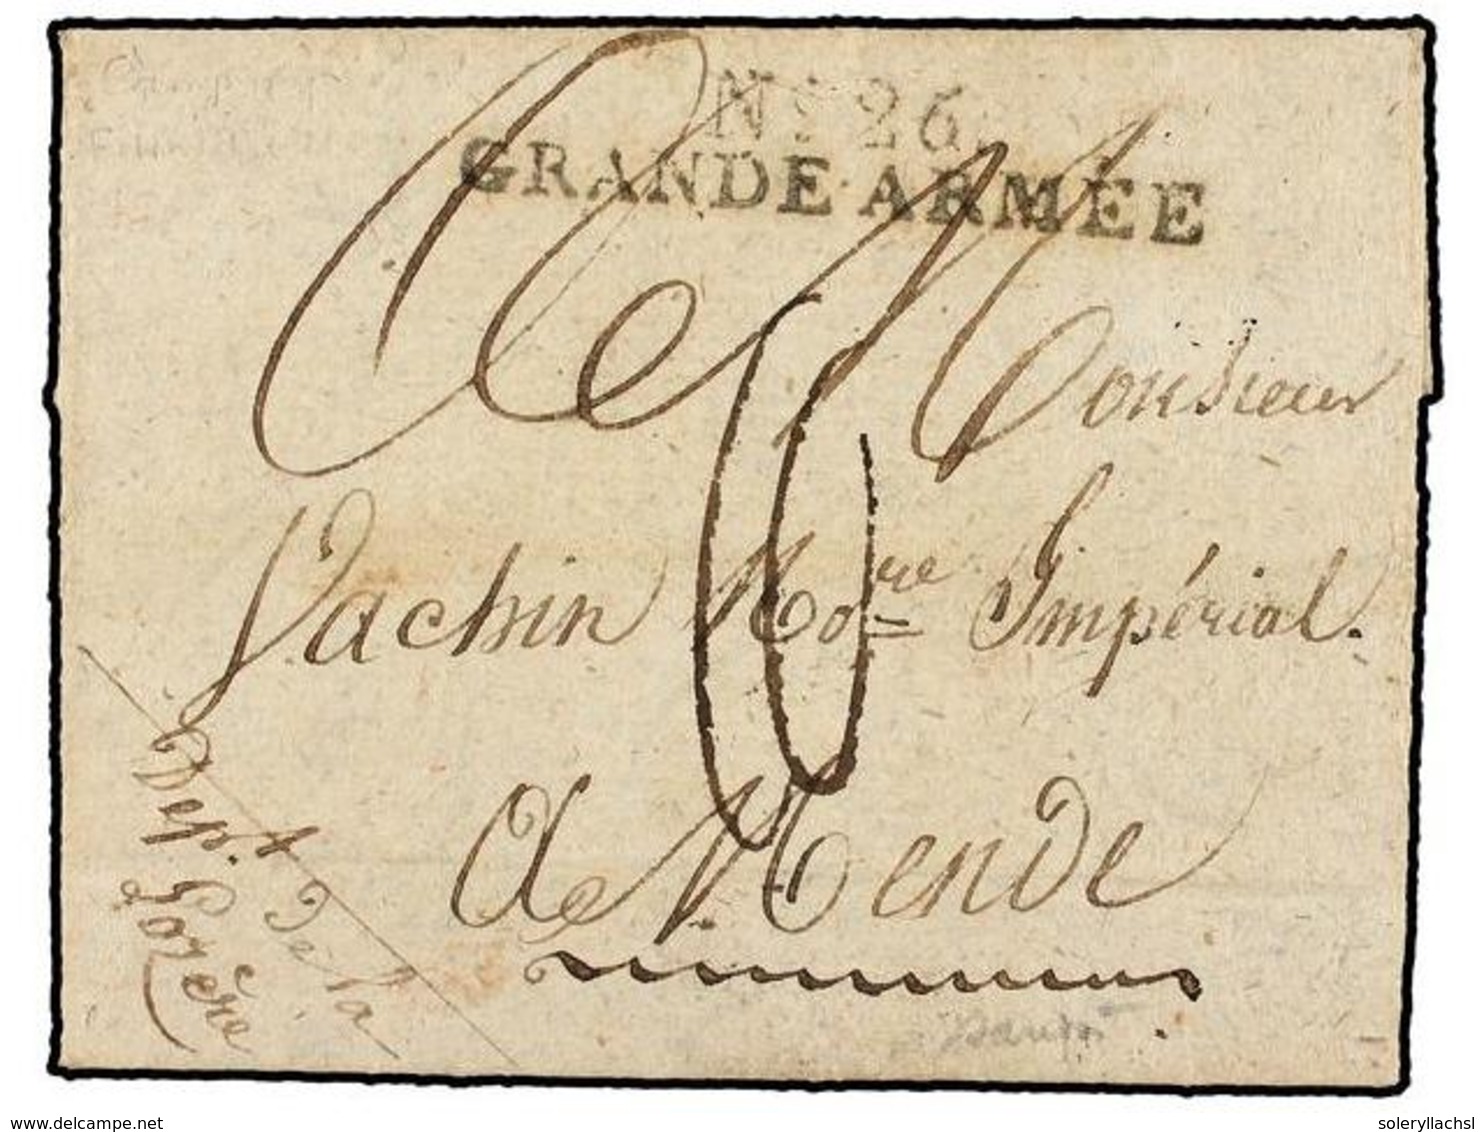 N° 26.
GRANDE ARMÉE
A Monsieur
Vachin No.re Impérial.
A Mende
Dep.t De la
Lozère
delcampe.net
soleryllachsl